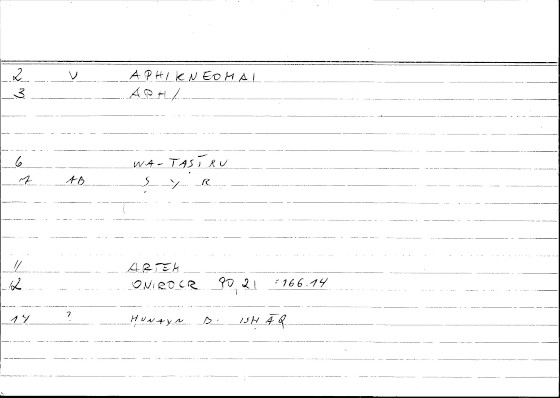 2 V APHIKNEOMAI
3 APH/
6 WA-TAṢĪRU
7 AB Ṣ Y R
11 ARTEM
12 ONIROCR 90,21 =166.14
14 ? ḤUNAYN B. ISḤĀQ